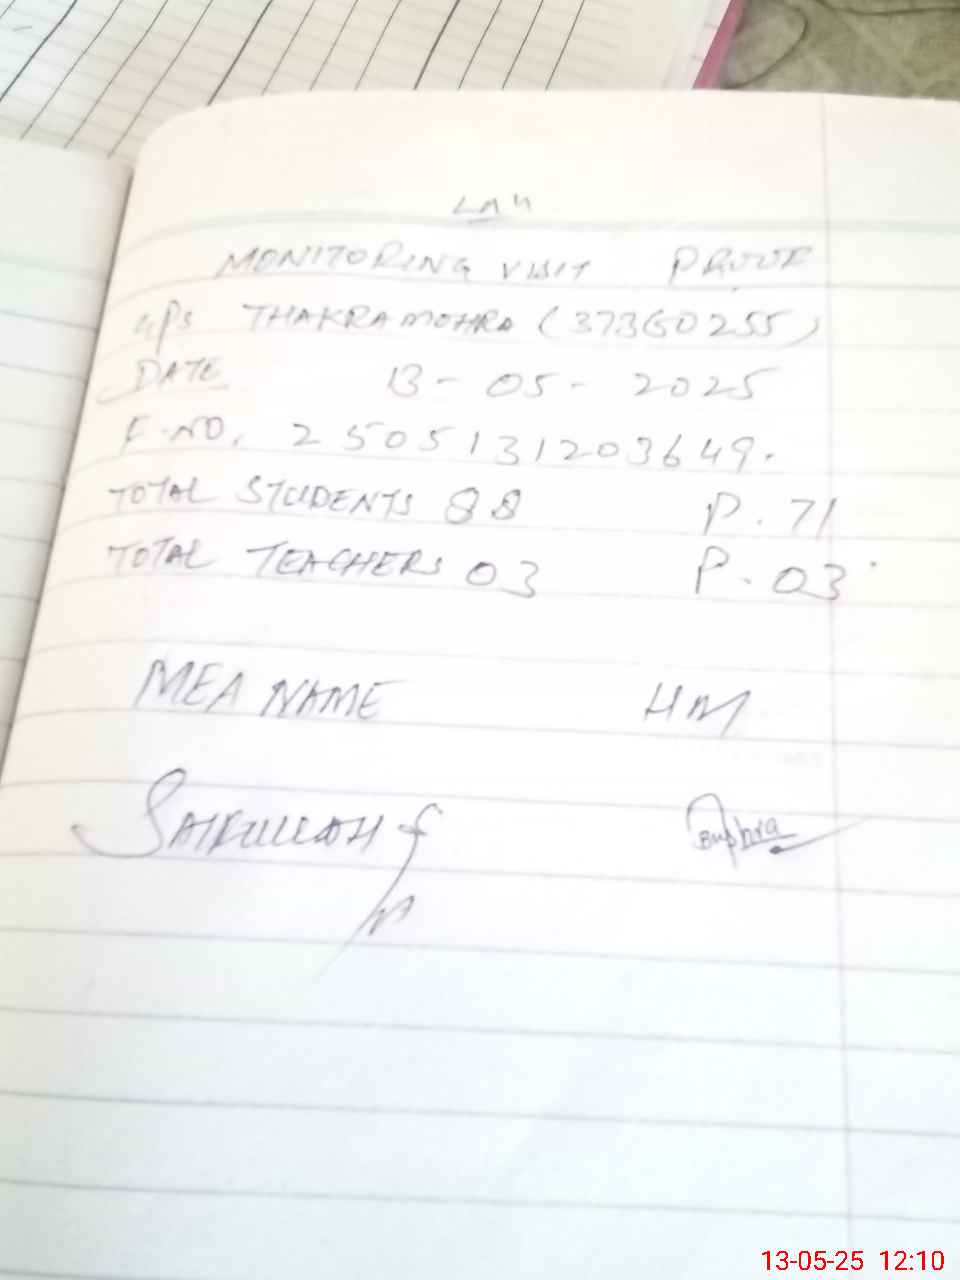 MONITORING VISIT PROOF
GPS THAKRA MOHRA (37360255)
DATE 13-05-2025
F.NO. 2505131203649.
TOTAL STUDENTS 88 P. 71
TOTAL TEACHERS 03 P. 03
MEA NAME HM
SAIFULLAH
13-05-25 12:10